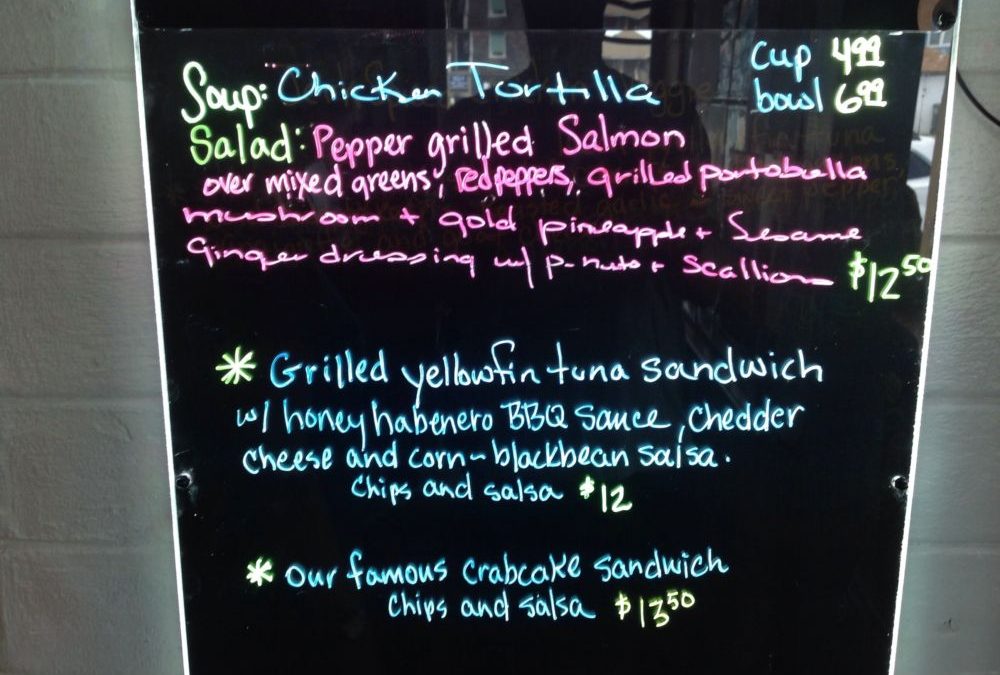 Soup: Chicken Tortilla cup 4.99
bowl 6.99
Salad: Pepper grilled Salmon
over mixed greens, red peppers, grilled portobella
mushroom + gold pineapple + Sesame
Ginger dressing w/ p-nuts + Scallion $12.50
* Grilled yellowfin tuna sandwich
w/ honey habenero BBQ sauce, chedder
cheese and corn-blackbean salsa.
chips and salsa $12
* our famous crabcake sandwich
chips and salsa $13.50